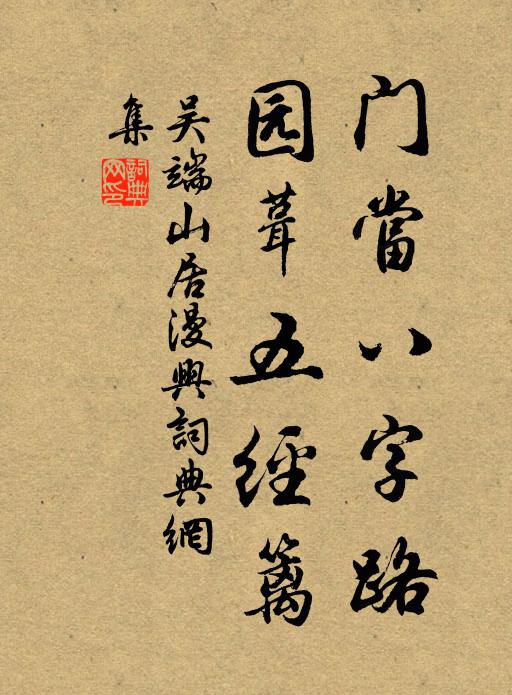 门當八字路
园葺五經篱
吴端山居漫興詞典網
集
詞典网印